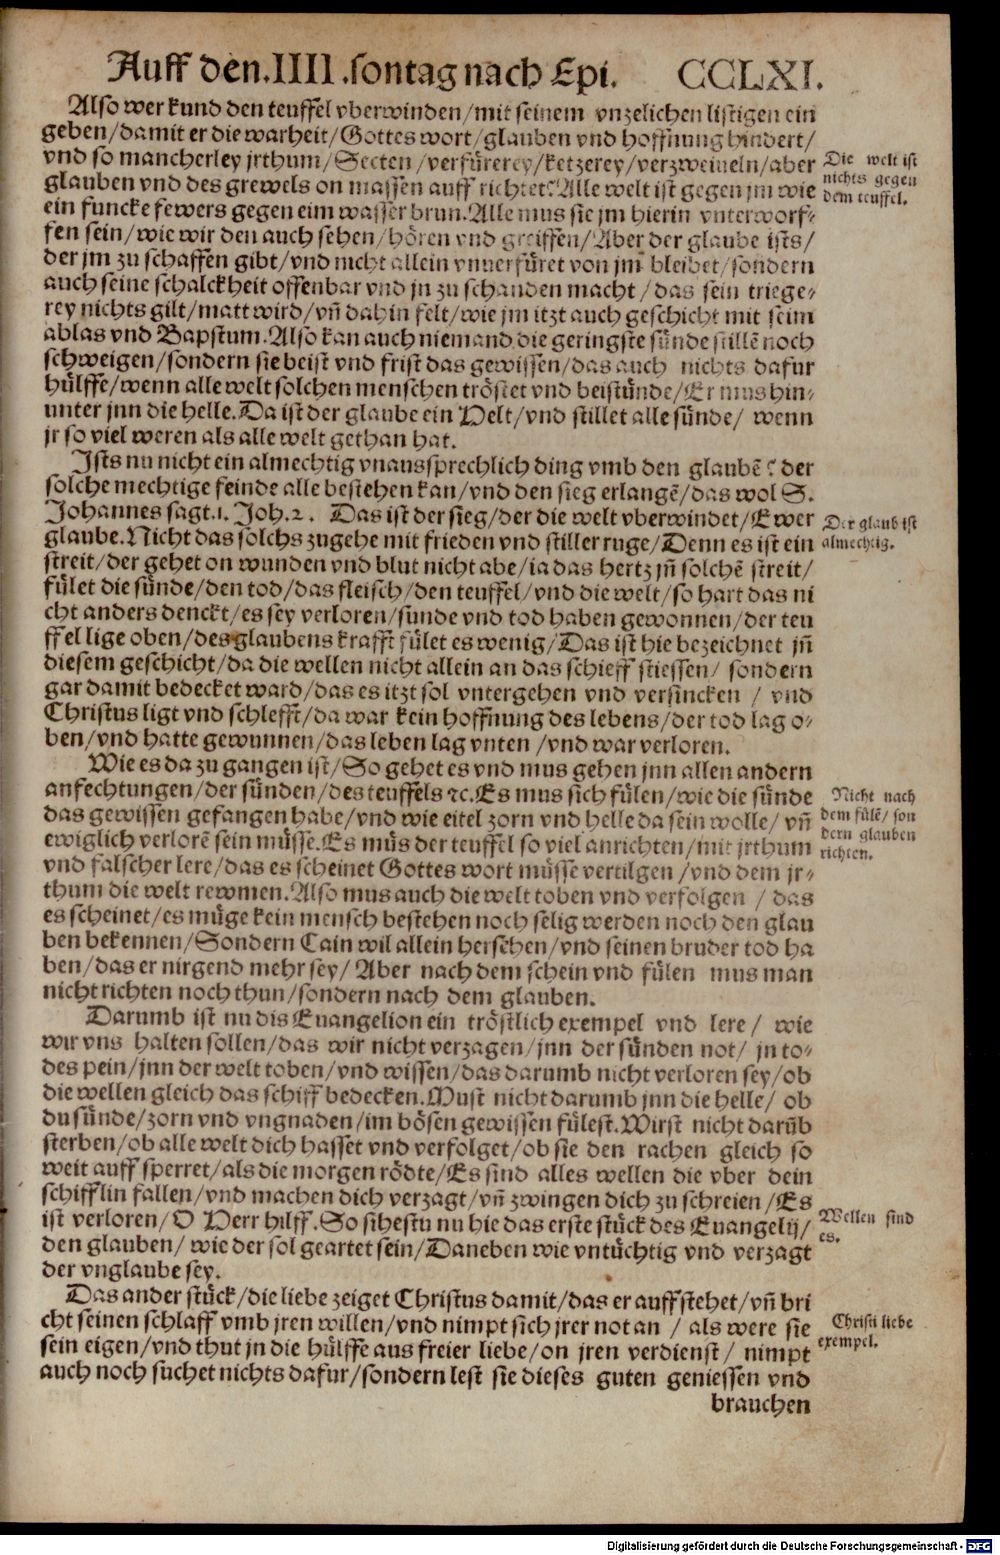 Auff den.IIII.sontag nach Epi. CCLXI.
Also wer kund den teuffel vberwinden/mit seinem vnzelichen listigen ein
geben/damit er die warheit/Gottes wort/glauben vnd hoffnung hindert/
vnd so mancherley jrthum/Secten/verfürerey/ketzerey/verzweiueln/aber
glauben vnd des grewels on massen auff richtet? Alle welt ist gegen jm wie
ein funcke fewers gegen eim wasser brun. Alle mus sie jm hierin vnterworf-
fen sein/wie wir den auch sehen/hören vnd greiffen/Aber der glaube ists/
der jm zu schaffen gibt/vnd nicht allein vnuerfüret von jm bleibet/sondern
auch seine schalckheit offenbar vnd jn zu schanden macht/das sein triege-
rey nichts gilt/matt wird/vñ dahin felt/wie jm itzt auch geschicht mit seim
ablas vnd Bapstum. Also kan auch niemand die geringste sünde stillẽ noch
schweigen/sondern sie beist vnd frist das gewissen/das auch nichts dafur
hülffe/wenn alle welt solchen menschen tröstet vnd beistünde/Er mus hin-
unter jnn die helle. Da ist der glaube ein Helt/vnd stillet alle sünde/ wenn
jr so viel weren als alle welt gethan hat.
Ists nu nicht ein almechtig vnaussprechlich ding vmb den glaubẽ? der
solche mechtige feinde alle bestehen kan/vnd den sieg erlangẽ/das wol S.
Johannes sagt.1. Joh.2. Das ist der sieg/der die welt vberwindet/Ewer
glaube. Nicht das solchs zugehe mit frieden vnd stiller ruge/Denn es ist ein
streit/der gehet on wunden vnd blut nicht abe/ia das hertz jñ solchẽ streit/
fület die sünde/den tod/das fleisch/den teuffel/vnd die welt/so hart das ni
cht anders denckt/es sey verloren/sunde vnd tod haben gewonnen/der teu
ffel lige oben/des glaubens krafft fület es wenig/Das ist hie bezeichnet jñ
diesem geschicht/da die wellen nicht allein an das schieff stiessen/ sondern
gar damit bedecket ward/das es itzt sol vntergehen vnd versincken / vnd
Christus ligt vnd schlefft/da war kein hoffnung des lebens/der tod lag o-
ben/vnd hatte gewunnen/das leben lag vnten/vnd war verloren.
Wie es da zu gangen ist/So gehet es vnd mus gehen jnn allen andern
anfechtungen/der sünden/des teuffels ⁊c. Es mus sich fülen/wie die sünde
das gewissen gefangen habe/vnd wie eitel zorn vnd helle da sein wolle/ vñ
ewiglich verlorẽ sein müsse. Es müs der teuffel so viel anrichten/mit jrthum
vnd falscher lere/das es scheinet Gottes wort müsse vertilgen/vnd dem jr-
thum die welt rewmen. Also mus auch die welt toben vnd verfolgen / das
es scheinet/es müge kein mensch bestehen noch selig werden noch den glau
ben bekennen/Sondern Cain wil allein herschen/vnd seinen bruder tod ha
ben/das er nirgend mehr sey/ Aber nach dem schein vnd fülen mus man
nicht richten noch thun/sondern nach dem glauben.
Darumb ist nu dis Euangelion ein tröstlich exempel vnd lere/ wie
wir vns halten sollen/das wir nicht verzagen/jnn der sünden not/ jn to-
des pein/jnn der welt toben/vnd wissen/das darumb nicht verloren sey/ob
die wellen gleich das schiff bedecken. Must nicht darumb jnn die helle/ ob
du sünde/zorn vnd vngnaden/im bösen gewissen fülest. Wirst nicht darüb
sterben/ob alle welt dich hasset vnd verfolget/ob sie den rachen gleich so
weit auff sperret/als die morgen rödte/Es sind alles wellen die vber dein
schifflin fallen/vnd machen dich verzagt/vñ zwingen dich zu schreien/Es
ist verloren/O Herr hilff. So sihestu nu hie das erste stück des Euangelij/
den glauben/ wie der sol geartet sein/Daneben wie vntüchtig vnd verzagt
der vnglaube sey.
Das ander stück/die liebe zeiget Christus damit/das er auff stehet/vñ bri
cht seinen schlaff vmb jren willen/vnd nimpt sich jrer not an / als were sie
sein eigen/vnd thut jn die hülffe aus freier liebe/on jren verdienst/ nimpt
auch noch suchet nichts dafur/sondern lest sie dieses guten geniessen vnd
brauchen
Die welt ist
nichts gegen
dem teuffel.
Der glaub ist
almechtig.
Nicht nach
dem fülẽ/son
dern glauben
richten.
Wellen sind
es.
Christi liebe
exempel.
Digitalisierung gefördert durch die Deutsche Forschungsgemeinschaft - DFG